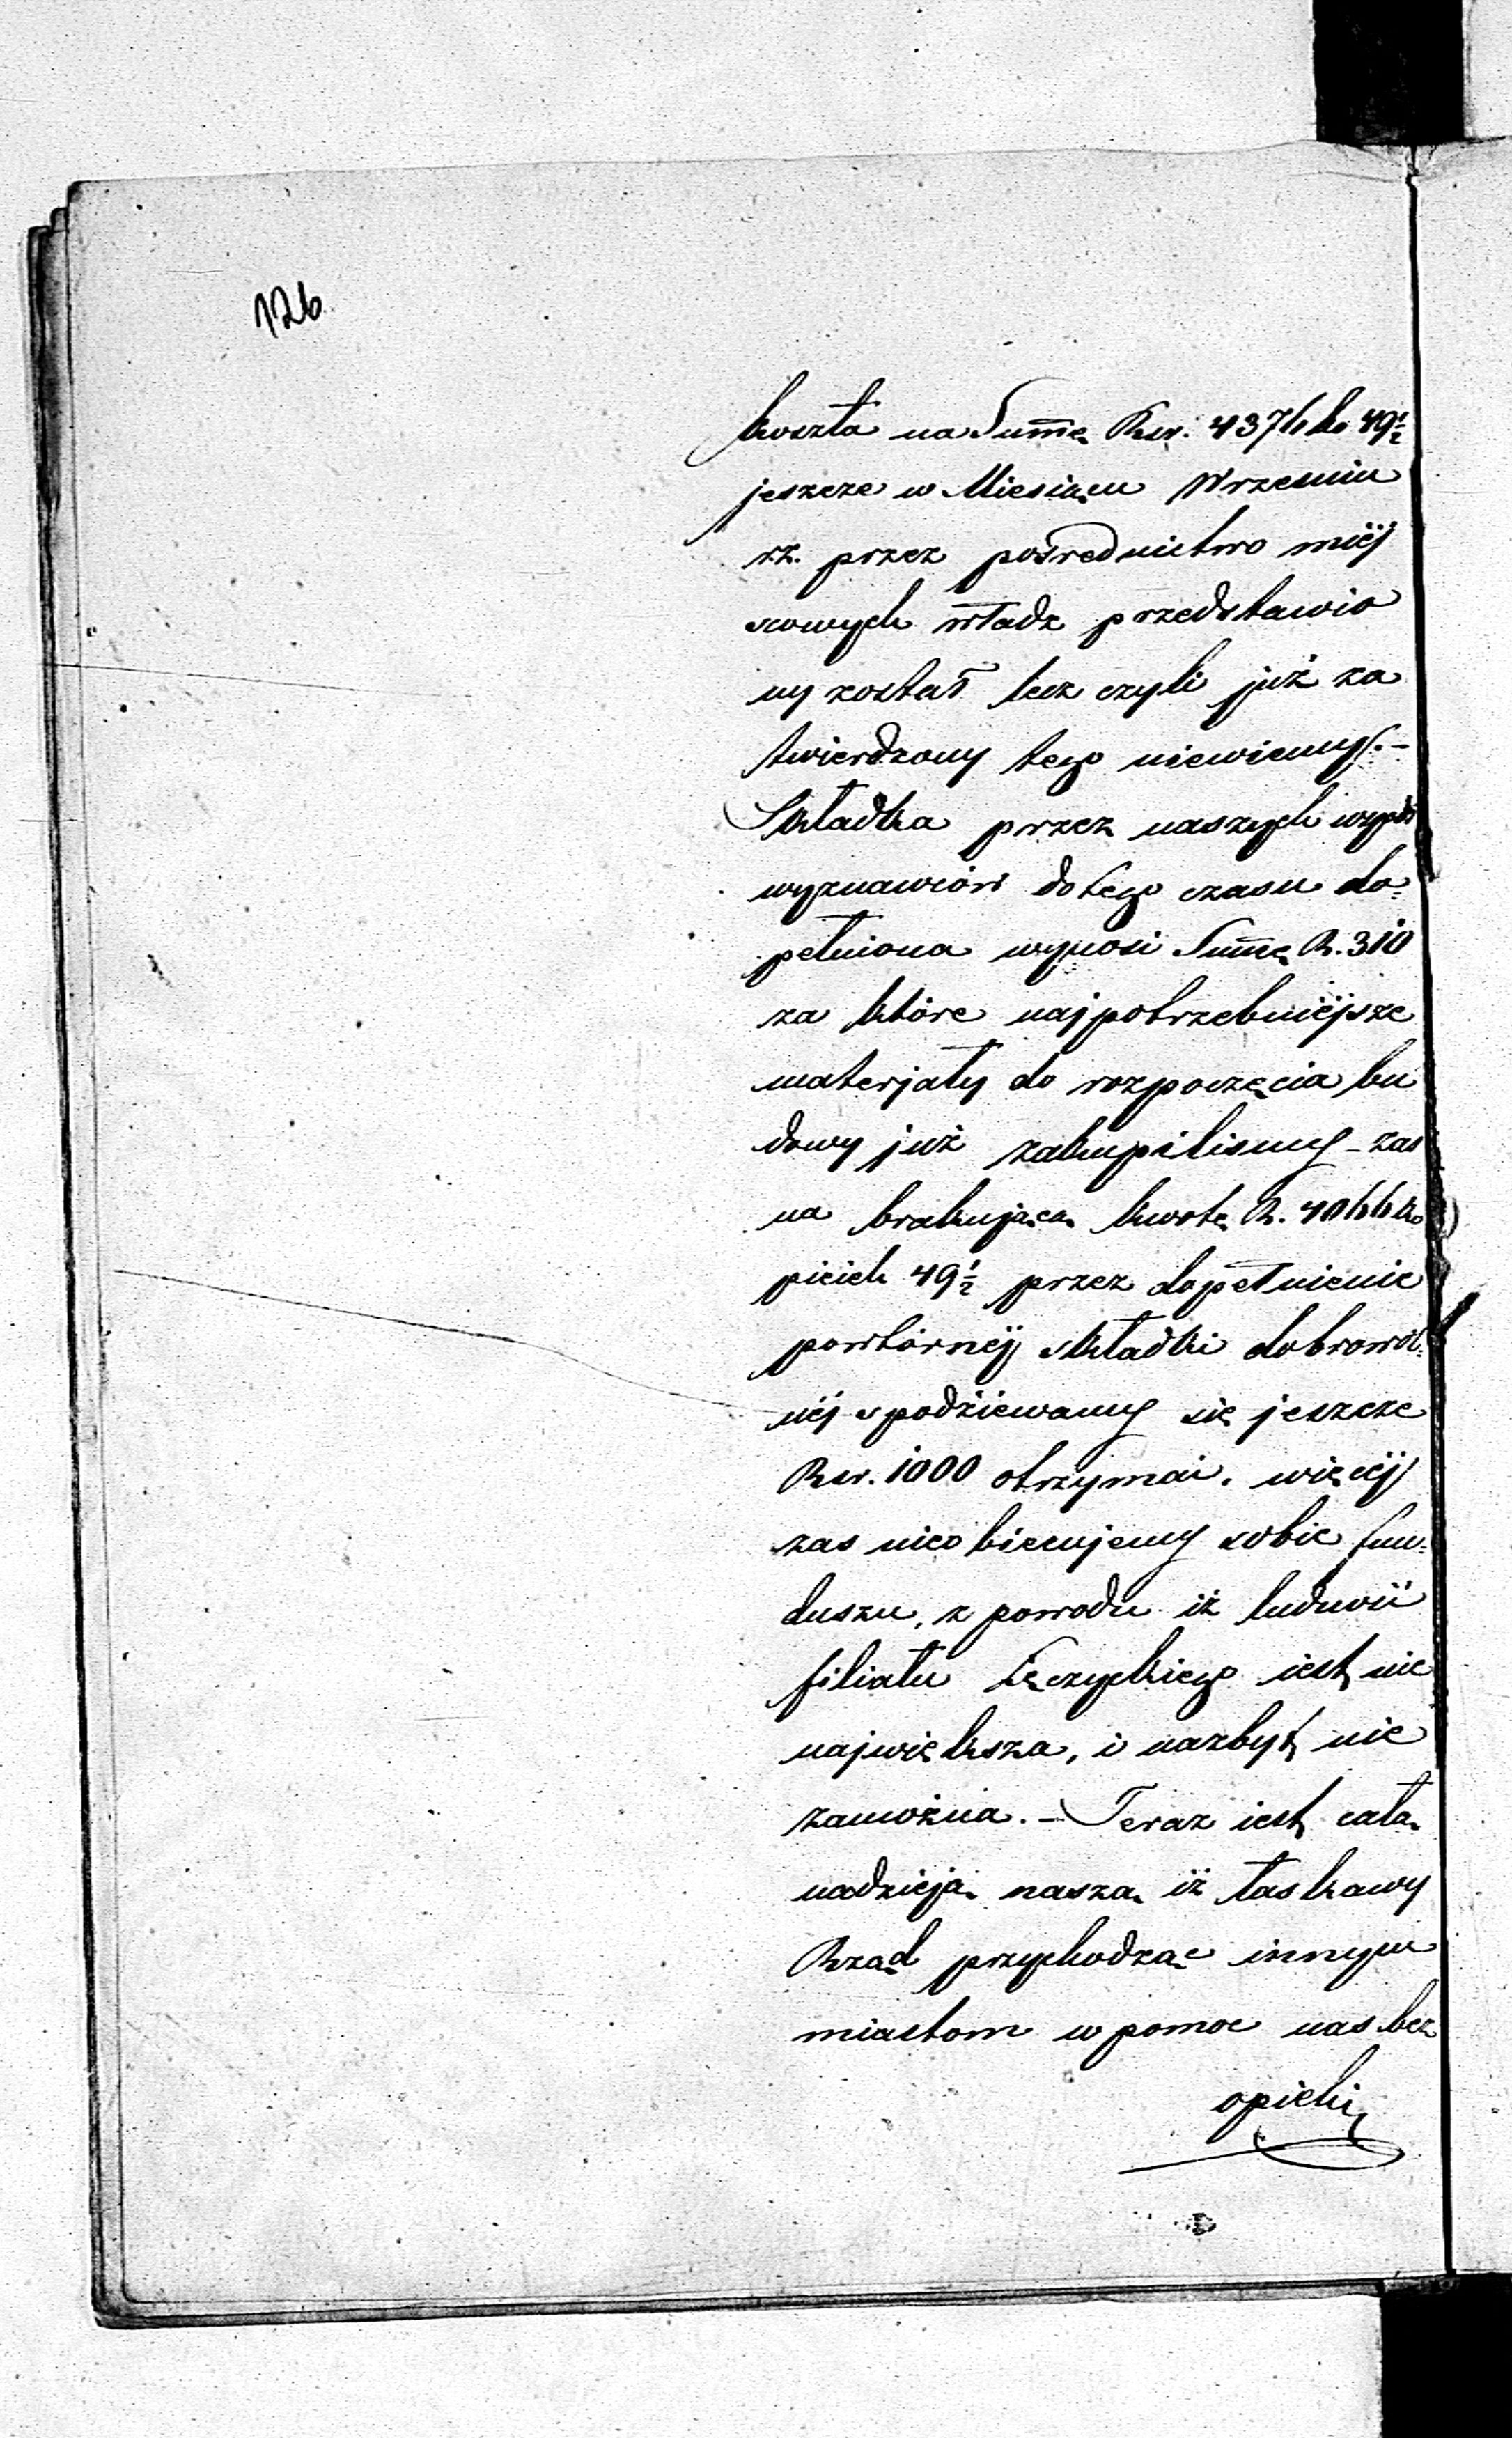 126
koszta na Summę Rsr. 4376 ko 49½
jeszcze w Miesiącu Wrzesniu
r.z. przez pośrednictwo miéj
scowych władz przedstawio
ny został lecz czyli już za
twierdzony tego niewiemy.–
Składka przez naszych wspòł
wyznawców dotego czasu do=
pełniona wynosi Summę R. 310
za które najpotrzebniéjsze
materjały do rozpoczęcia bu
dowy już zakupilismy – zas
na brakującą kwotę R. 4066 ko
piejek 49½ przez dopełnienie
powtórnéj składki dobrowol=
néj spodziewamy się jeszcze
Rsr. 1000 otrzymać. więcéj
zas nieobiecujemy sobie fun=
duszu, z powodu iż ludność
filiału Łęczyckiego iest nie
największa, i nazbyt nie
zamożna. – Teraz iest całą
nadzieją naszą iż łaskawy
Rząd przychodząc innym
miastom w pomoc nas bez
opieki